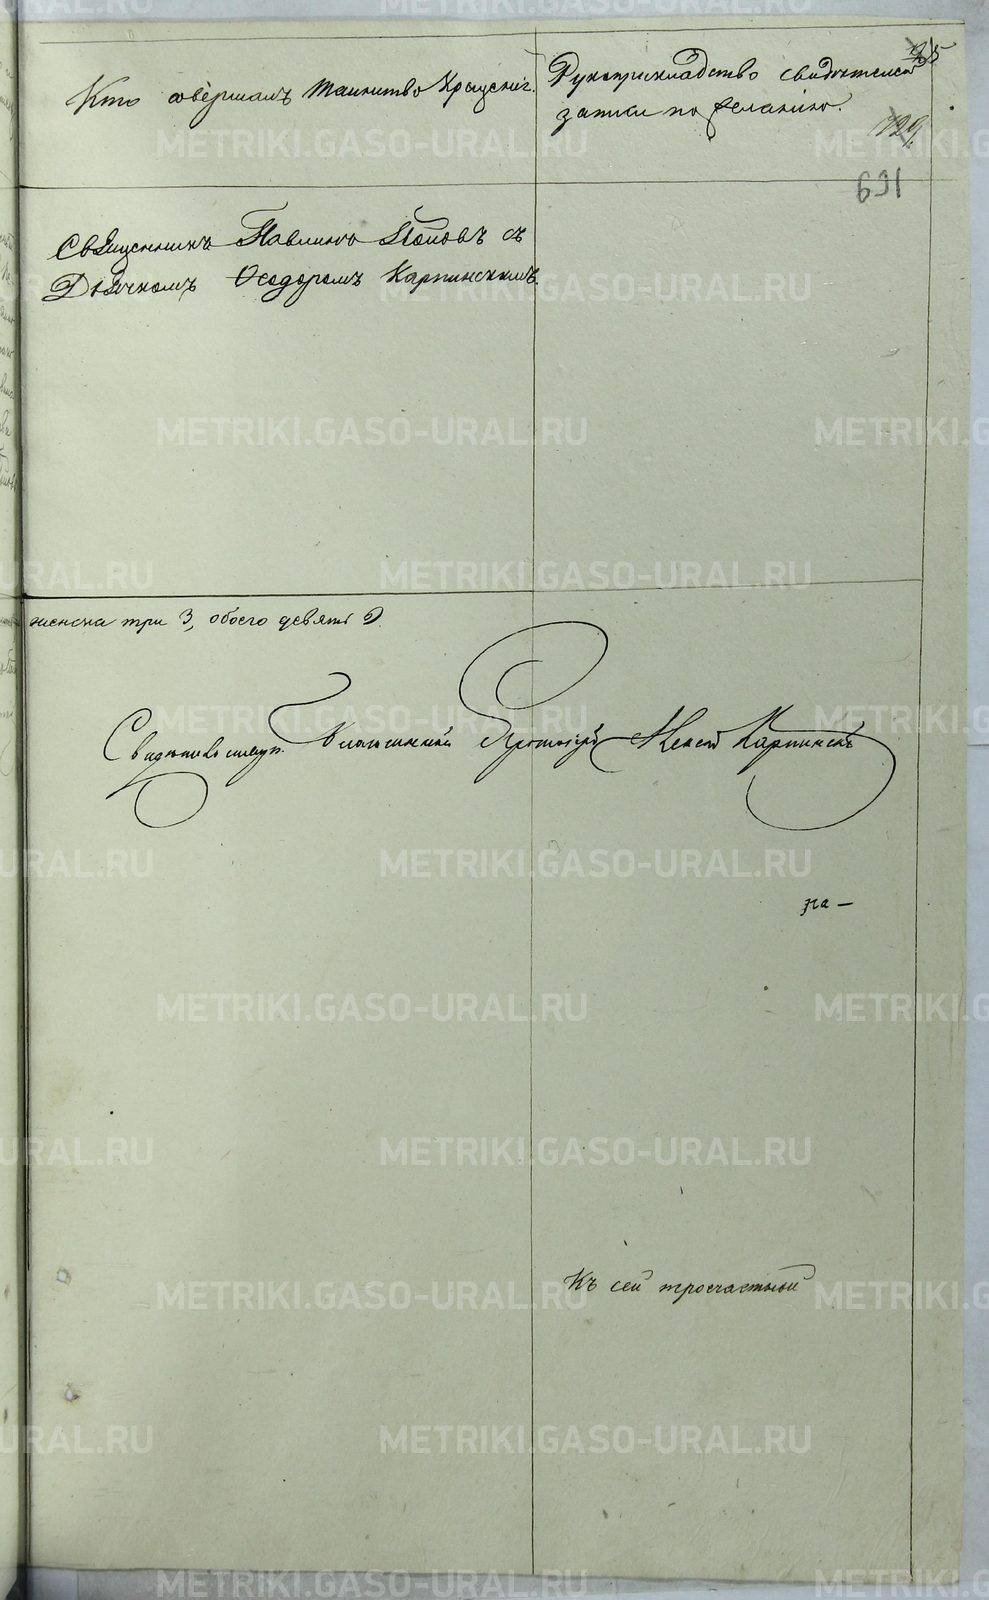 Кто совершалъ таинство крещенія.
Рукоприкладство свидѣтелей
записи по желанію.
129
691
Священникъ Павлинъ Поповъ съ
Дьячкомъ Ѳеодоромъ Карпинскимъ.
женска три 3, обоего девять 9.
Свидѣтельствуетъ Благочинный Протоіерей Алексій Карпинскій
на —
Къ сей троечастной
METRIKI.GASO-URAL.RU